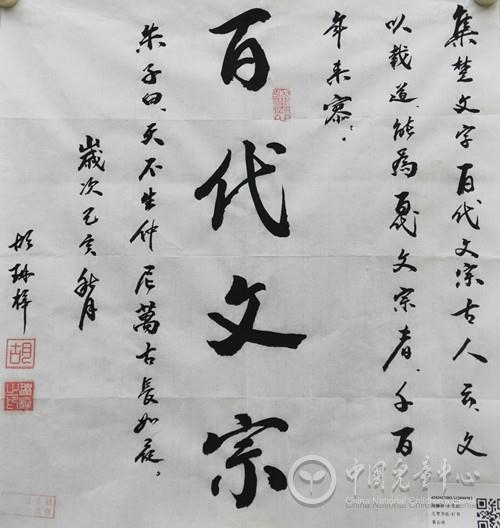 集楚文字百代文宗古人云、文
以載道、能為百代文宗者、千百
年来寥、
百代文宗
朱子曰、天不生仲尼萬古長如夜。
歲次己亥秋月
胡
胡
中國兒童中心
China National Children's Center